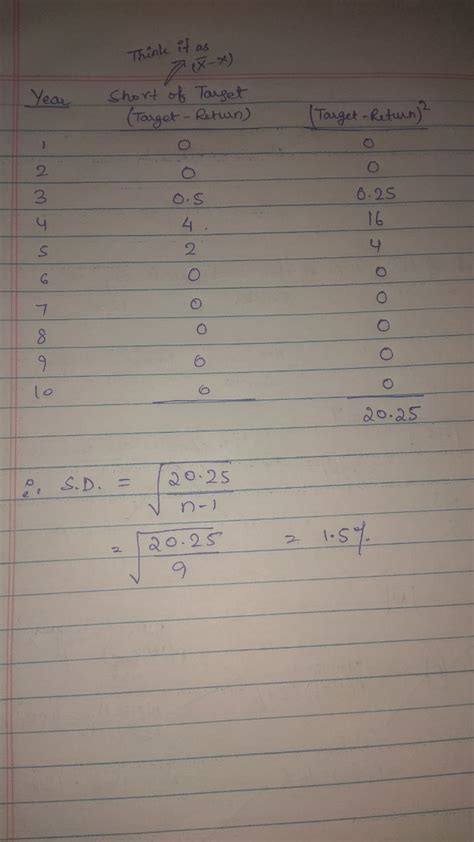 Think it as
(x̄-x)
Year Short of Target (Target-Return)²
(Target-Return)
1 0 0
2 0 0
3 0.5 0.25
4 4. 16
5 2 4
6 0 0
7 0 0
8 0 0
9 0 0
10 0 0
20.25
∴ S.D. = √20.25/n-1
= √20.25/9 = 1.5%